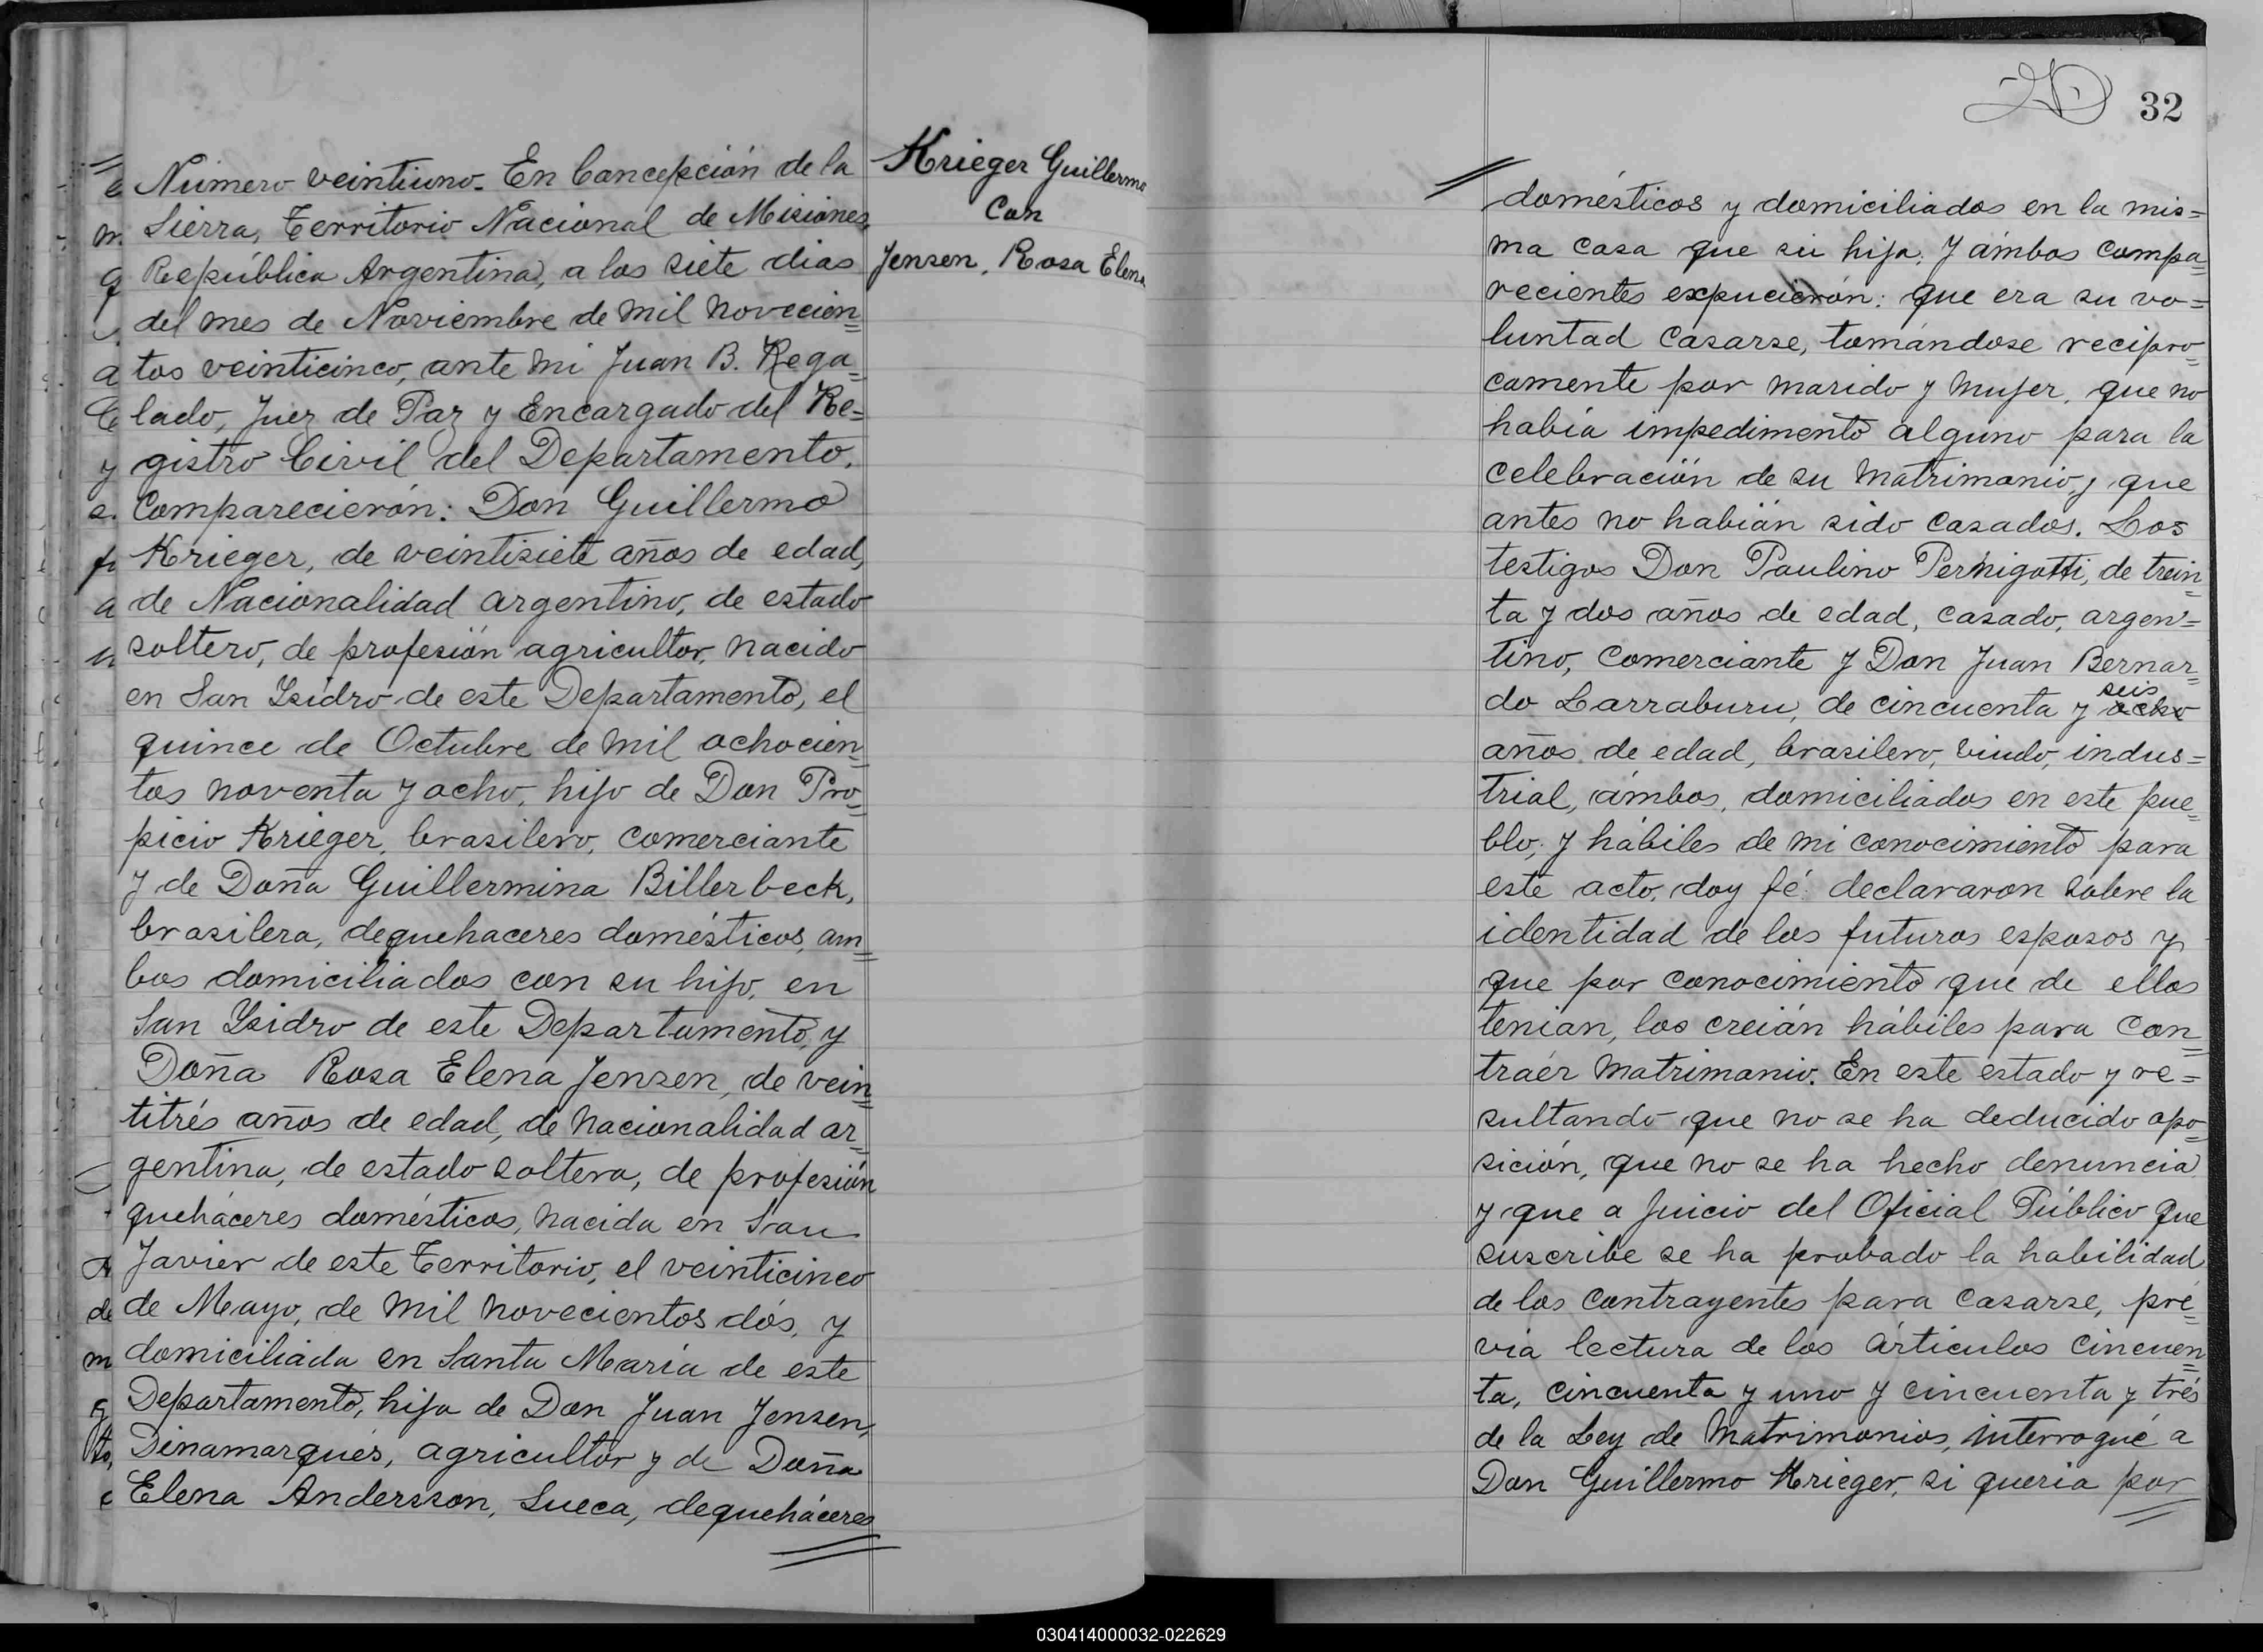 Número veintiuno. En Concepción de la
Sierra, Territorio Nacional de Misiones,
República Argentina, a los siete dias
del mes de Noviembre de mil novecien=
tos veinticinco, ante mi Juan B. Rega=
lado, Juez de Paz y Encargado del Re=
gistro Civil del Departamento.
Comparecierón: Don Guillermo
Krieger, de veintisiete años de edad,
de Nacionalidad argentino, de estado
soltero, de profesión agricultor, nacido
en San Ysidro de este Departamento, el
quince de Octubre de mil ochocien=
tos noventa y ocho, hijo de Don Pro=
picio Krieger, brasilero, comerciante
y de Doña Guillermina Billerbeck,
brasilera, dequehaceres domésticos, am=
bos domiciliados con su hijo, en
San Ysidro de este Departamento, y
Doña Rosa Elena Jensen, de vein=
titrés años de edad, de nacionalidad ar=
gentina, de estado soltera, de profesión
queháceres domésticos, nacida en San
Javier de este Territorio, el veinticinco
de Mayo, de mil novecientos dós, y
domiciliada en Santa María de este
Departamento, hija de Don Juan Jensen,
Dinamarqués, agricultor y de Doña
Elena Andersson, Sueca, dequeháceres
Krieger Guillermo
Con
Jensen, Rosa Elena
32
domésticos y domiciliados en la mis=
ma casa que su hija. Y ámbos compa=
recientes expucierón: que era su vo=
luntad casarse, tomándose recipro=
camente por marido y mujer, que no
había impedimento alguno para la
celebración de su matrimonio y que
antes no habián sido casados. Los
testigos Don Paulino Pernigotti, de trein=
ta y dos años de edad, casado, argen=
tino, comerciante y Don Juan Bernar=
seis
do Larraburu, de cincuenta y ocho
años de edad, brasilero, viudo, indus=
trial, ámbos, domiciliados en este pue=
blo, y hábiles de mi conocimiento para
este acto, doy fé: declararon sobre la
identidad de los futuros esposos y
que por conocimiento que de ellos
tenian, los creián hábiles para con=
traér matrimonio. En este estado y re=
sultando que no se ha deducido opo=
sición, que no se ha hecho denuncia
y que a juicio del Oficial Público que
suscribe se ha probado la habilidad
de los contrayentes para casarse, pré=
via lectura de los árticulos cincuen=
ta, cincuenta y uno y cincuenta y trés
de la Ley de Matrimonios, interrogué a
Don Guillermo Krieger, si queria por
030414000032-022629